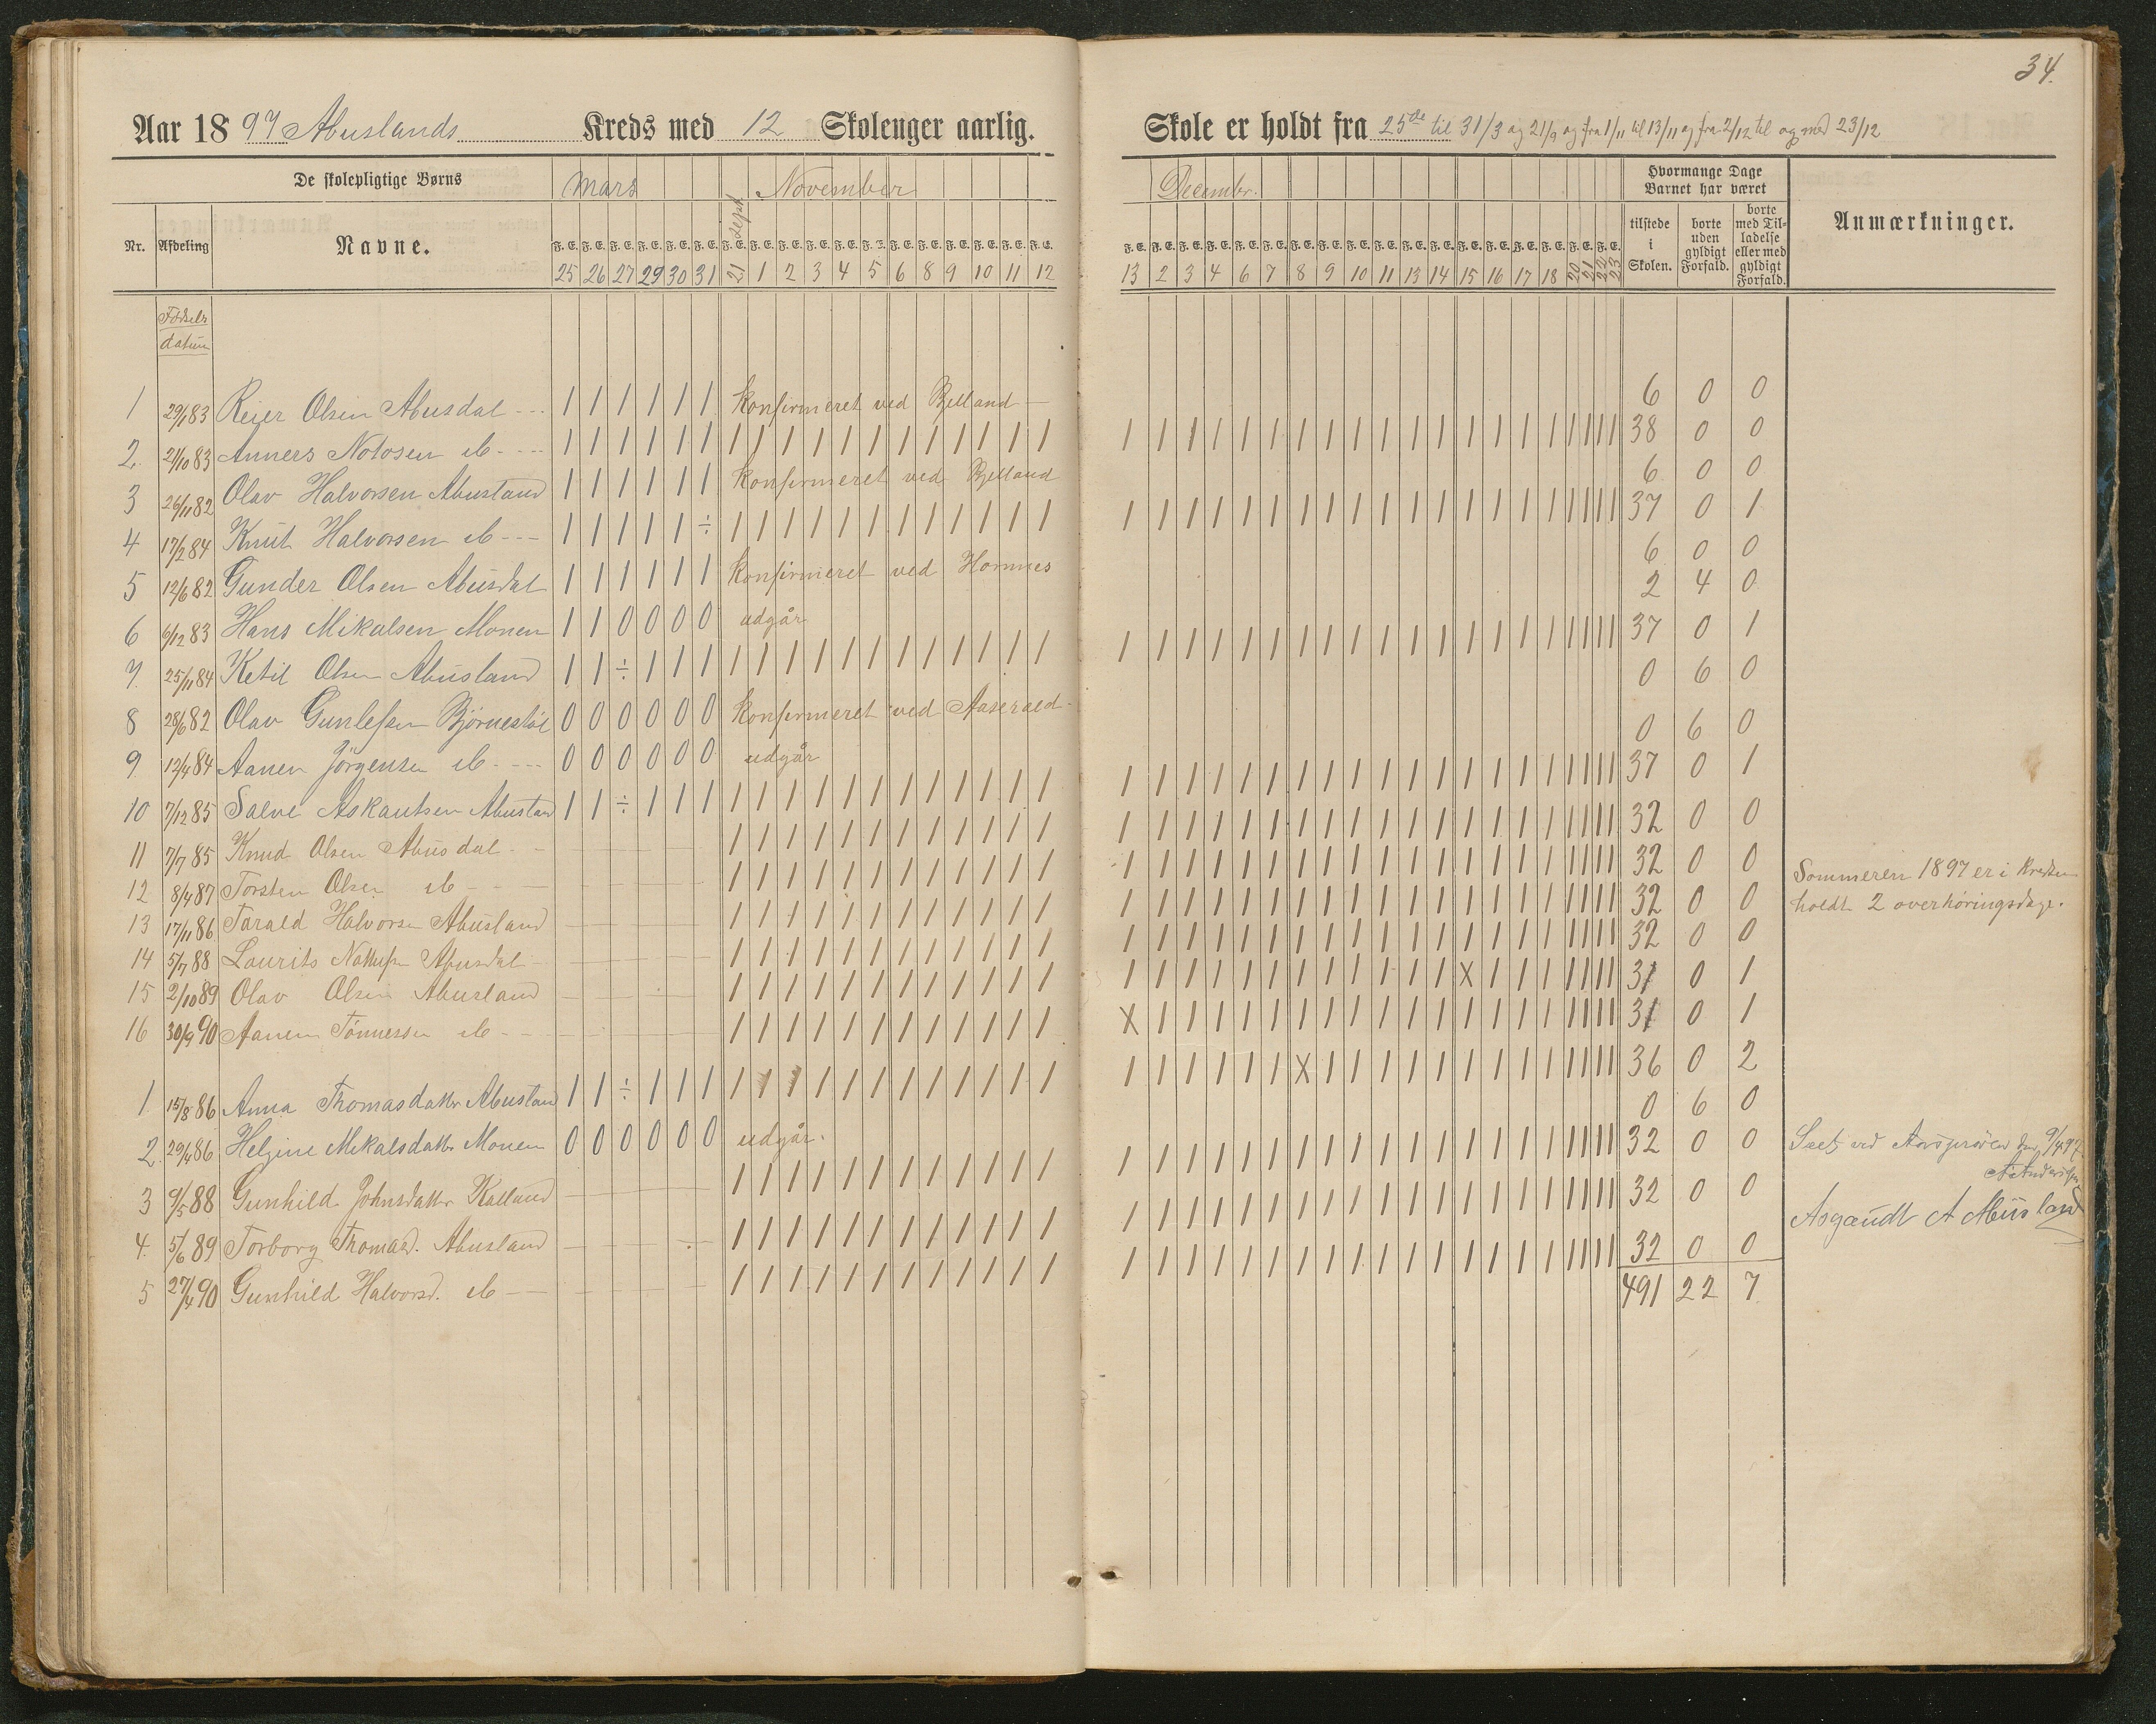 34.
Aar 1897 Abuslands Kreds med 12 Skoleuger aarlig.
Skole er holdt fra 25de til 31/3 og 21/9 og fra 1/11 til 13/11 og fra 2/12 til og med 23/12
De skolepligtige Børns
Mars
21 Sept.
November
Decembr.
Hvormange Dage Barnet har været
Nr. Afdeling Navne.
F. E. F. E. F. E. F. E. F. E. F. E. F. E. F. E. F. E. F. E. F. E. F. E. F. E. F. E. F. E. F. E. F. E. F. E.
25 26 27 29 30 31 21 1 2 3 4 5 6 8 9 10 11 12
13 2 3 4 6 7 8 9 10 11 13 14 15 16 17 18 20 21 22 23
tilstede i Skolen.
borte uden gyldigt Forfald.
borte med Tilladelse eller med gyldigt Forfald.
Anmærkninger.
Fødsels datum
1 29/1 83 Reier Olsen Abusdal --- 1 1 1 1 1 1 Konfirmeret ved Bjelland 6 0 0
2. 21/10 83 Anners Notosen ib ---- 1 1 1 1 1 1 1 1 1 1 1 1 1 1 1 1 1 1 1 1 1 1 1 1 1 1 1 1 1 1 1 1 1 1 1 1 1 1 38 0 0
3 26/11 82 Olav Halvorsen Abusland 1 1 1 1 1 1 Konfirmeret ved Bjelland 6 0 0
4 17/2 84 Knut Halvorsen ib --- 1 1 1 1 1 ÷ 1 1 1 1 1 1 1 1 1 1 1 1 1 1 1 1 1 1 1 1 1 1 1 1 1 1 1 1 1 1 1 1 37 0 1
5 12/6 82 Gunder Olsen Abusdal 1 1 1 1 1 1 Konfirmeret ved Hornnes 6 0 0
6 6/12 83 Hans Mikalsen Monen 1 1 0 0 0 0 udgår 2 4 0
7. 25/11 84 Ketil Olsen Abusland 1 1 ÷ 1 1 1 1 1 1 1 1 1 1 1 1 1 1 1 1 1 1 1 1 1 1 1 1 1 1 1 1 1 1 1 1 1 1 1 37 0 1
8 28/6 82 Olav Gunlefsen Bjørnestøl 0 0 0 0 0 0 Konfirmeret ved Aaserald - 0 6 0
9 12/4 84 Aanen Jörgensen ib. --- 0 0 0 0 0 0 udgår 0 6 0
10 7/12 85 Salve Askautsen Abusland 1 1 ÷ 1 1 1 1 1 1 1 1 1 1 1 1 1 1 1 1 1 1 1 1 1 1 1 1 1 1 1 1 1 1 1 1 1 1 1 37 0 1
11 7/7 85 Knud Olsen Abusdal - - 1 1 1 1 1 1 1 1 1 1 1 1 1 1 1 1 1 1 1 1 1 1 1 1 1 1 1 1 1 1 1 1 32 0 0
12 8/4 87 Torsten Olsen ib - - - 1 1 1 1 1 1 1 1 1 1 1 1 1 1 1 1 1 1 1 1 1 1 1 1 1 1 1 1 1 1 1 1 32 0 0
13 17/11 86 Tarald Halvorsen Abusland 1 1 1 1 1 1 1 1 1 1 1 1 1 1 1 1 1 1 1 1 1 1 1 1 1 1 1 1 1 1 1 1 32 0 0
14 5/7 88 Laurits Abusdal 1 1 1 1 1 1 1 1 1 1 1 1 1 1 1 1 1 1 1 1 1 1 1 1 1 1 1 1 1 1 1 1 32 0 0
15 2/10 89 Olav Olsen Abusland 1 1 1 1 1 1 1 1 1 1 1 1 1 1 1 1 1 1 1 1 1 1 1 1 X 1 1 1 1 1 1 1 31 0 1
16 30/9 90 Aanen Tönnessen ib - - 1 1 1 1 1 1 1 1 1 1 1 1 X 1 1 1 1 1 1 1 1 1 1 1 1 1 1 1 1 1 1 1 31 0 1
1. 15/8 86 Anna Thomasdatter Abusland 1 1 ÷ 1 1 1 1 1 1 1 1 1 1 1 1 1 1 1 1 1 1 1 1 1 X 1 1 1 1 1 1 1 1 1 1 1 1 1 36 0 2
2. 29/4 86 Helgine Mikalsdatter Monen 0 0 0 0 0 0 udgår. 0 6 0
3 9/5 88 Gunhild Johnsdatter Kalland 1 1 1 1 1 1 1 1 1 1 1 1 1 1 1 1 1 1 1 1 1 1 1 1 1 1 1 1 1 1 1 1 32 0 0
4. 5/6 89 Torborg Thomasd. Abusland 1 1 1 1 1 1 1 1 1 1 1 1 1 1 1 1 1 1 1 1 1 1 1 1 1 1 1 1 1 1 1 1 32 0 0
5 27/4 90 Gunhild Halvorsd. ib - 1 1 1 1 1 1 1 1 1 1 1 1 1 1 1 1 1 1 1 1 1 1 1 1 1 1 1 1 1 1 1 1 32 0 0
491 22 7
Sommeren 1897 er i Kredsen
holdt 2 overhöringsdage.
Seet ved Aarspröven den 9/4 97
Asgaudt A Abusland